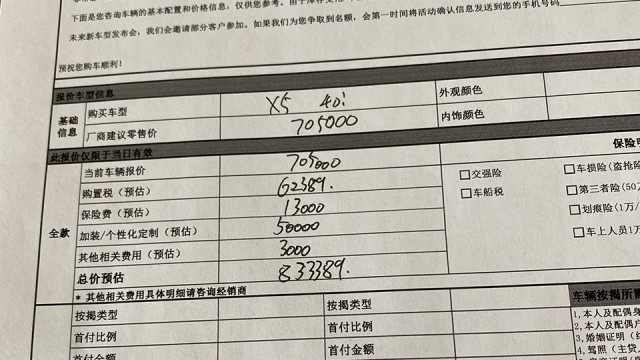 下面是您咨询车辆的基本配置和价格信息，仅供您参考。由于库存
未来新车型发布会，我们会邀请部分客户参加。如果我们为您争取到名额，会第一时间将活动确认信息发送到您的手机号码
预祝您购车顺利！
报价车型信息
基础信息 购买车型 X5 40i 外观颜色
厂商建议零售价 705000 内饰颜色
此报价仅限于当日有效 保险明
全款 当前车辆报价 705000 交强险 车损险(盗抢险
购置税（预估） 62389. 车船税 第三者险(50万
保险费（预估） 13000 划痕险(1万/
加装/个性化定制（预估） 50000 车上人员1万
其他相关费用（预估） 3000
总价预估 833389.
* 其他相关费用具体明细请咨询经销商
按揭类型 按揭类型 车辆按揭所需
首付比例 首付比例 1,本人及配偶身
首付金额 首付金额 2,本人及配偶户
3,婚姻证明
4,驾照（主贷